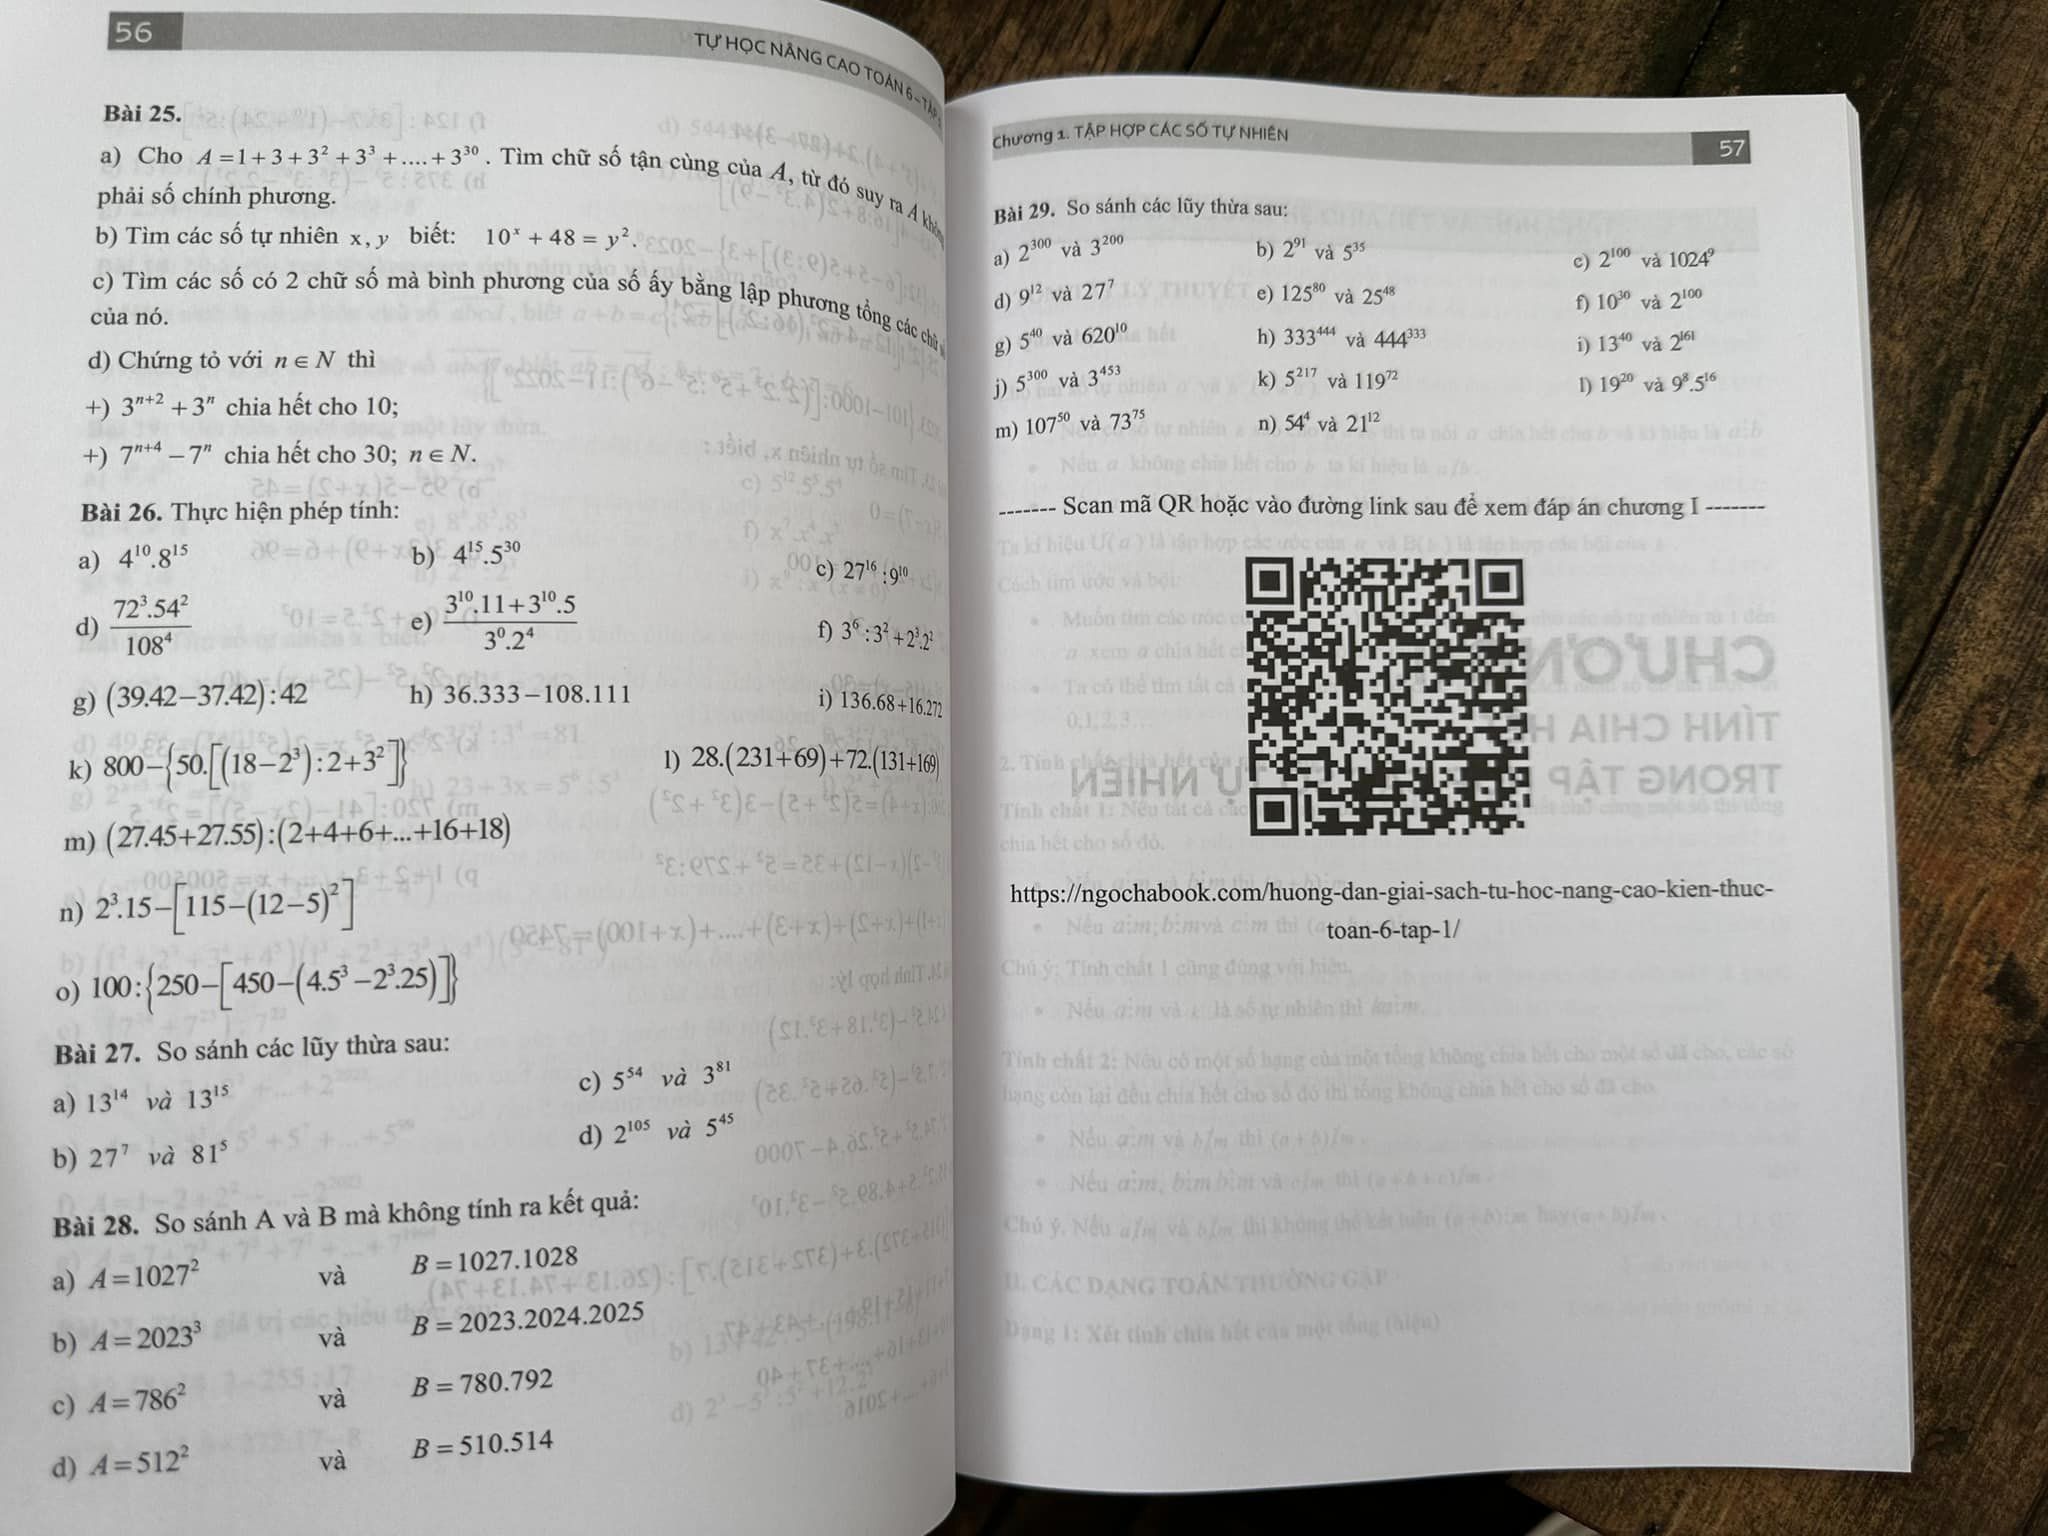 56
TỰ HỌC NÂNG CAO TOÁN 6 – TẬP
Bài 25.
a) Cho A = 1 + 3 + 3² + 3³ + .... + 3³⁰ . Tìm chữ số tận cùng của A, từ đó suy ra A
phải số chính phương.
b) Tìm các số tự nhiên x, y biết: 10ˣ + 48 = y².
c) Tìm các số có 2 chữ số mà bình phương của số ấy bằng lập phương tổng các chữ
của nó.
d) Chứng tỏ với n ∈ N thì
+) 3ⁿ⁺² + 3ⁿ chia hết cho 10;
+) 7ⁿ⁺⁴ − 7ⁿ chia hết cho 30; n ∈ N.
Bài 26. Thực hiện phép tính:
a) 4¹⁰.8¹⁵ b) 4¹⁵.5³⁰ c) 27¹⁶ : 9¹⁰
d) 72³.54² / 108⁴ e) 3¹⁰.11 + 3¹⁰.5 / 3⁹.2⁴ f) 3⁶ : 3² + 2³.2²
g) (39.42 − 37.42) : 42 h) 36.333 − 108.111 i) 136.68 + 16.272
k) 800 − {50.[(18 − 2³) : 2 + 3²]} l) 28.(231 + 69) + 72.(131 + 169)
m) (27.45 + 27.55) : (2 + 4 + 6 + ... + 16 + 18)
n) 2³.15 − [115 − (12 − 5)²]
o) 100 : {250 − [450 − (4.5³ − 2³.25)]}
Bài 27. So sánh các lũy thừa sau:
a) 13¹⁴ và 13¹⁵ c) 5⁵⁴ và 3⁸¹
b) 27⁷ và 81⁵ d) 2¹⁰⁵ và 5⁴⁵
Bài 28. So sánh A và B mà không tính ra kết quả:
a) A = 1027² và B = 1027.1028
b) A = 2023³ và B = 2023.2024.2025
c) A = 786² và B = 780.792
d) A = 512² và B = 510.514
Chương 1. TẬP HỢP CÁC SỐ TỰ NHIÊN
57
Bài 29. So sánh các lũy thừa sau:
a) 2³⁰⁰ và 3²⁰⁰ b) 2⁹¹ và 5³⁵ c) 2¹⁰⁰ và 1024⁹
d) 9¹² và 27⁷ e) 125⁸⁰ và 25⁴⁸ f) 10³⁰ và 2¹⁰⁰
g) 5⁴⁰ và 620¹⁰ h) 333⁴⁴⁴ và 444³³³ i) 13⁴⁰ và 2¹⁶¹
j) 5³⁰⁰ và 3⁴⁵³ k) 5²¹⁷ và 119⁷² l) 19²⁰ và 9⁸.5¹⁶
m) 107⁵⁰ và 73⁷⁵ n) 54⁴ và 21¹²
------- Scan mã QR hoặc vào đường link sau để xem đáp án chương I -------
https://ngochabook.com/huong-dan-giai-sach-tu-hoc-nang-cao-kien-thuc-
toan-6-tap-1/